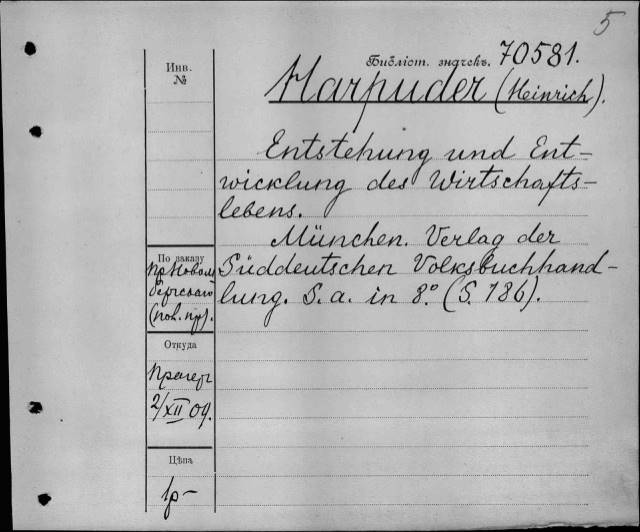 5
Библіот. значекъ. 70581.
Marpuder (Heinrich).
Entstehung und Ent-
wicklung des Wirtschafts-
lebens.
München. Verlag der
Süddeutschen Volksbuchhand-
lung. S. a. in 8.° (S. 186).
Инв.
№
По заказу
Откуда
2/XII 09.
Цѣна
1р-